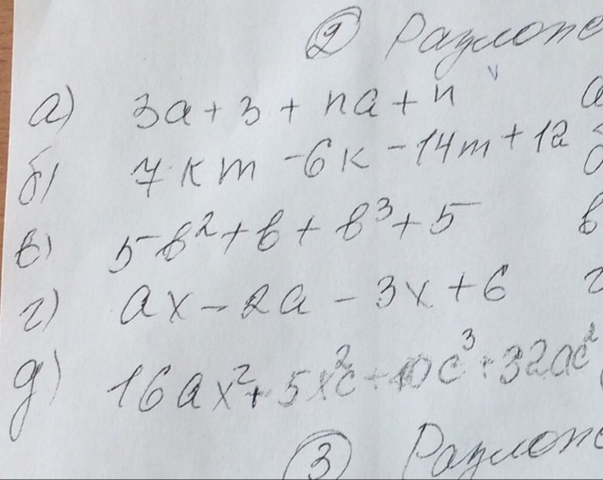 ② Разложе
а) 3a + 3 + na + n
б) 7km - 6k - 14m + 12
в) 5b² + b + b³ + 5
г) ax - 2a - 3x + 6
д) 16ax² + 5x²c + 10c³ + 32ac²
③ Разложе